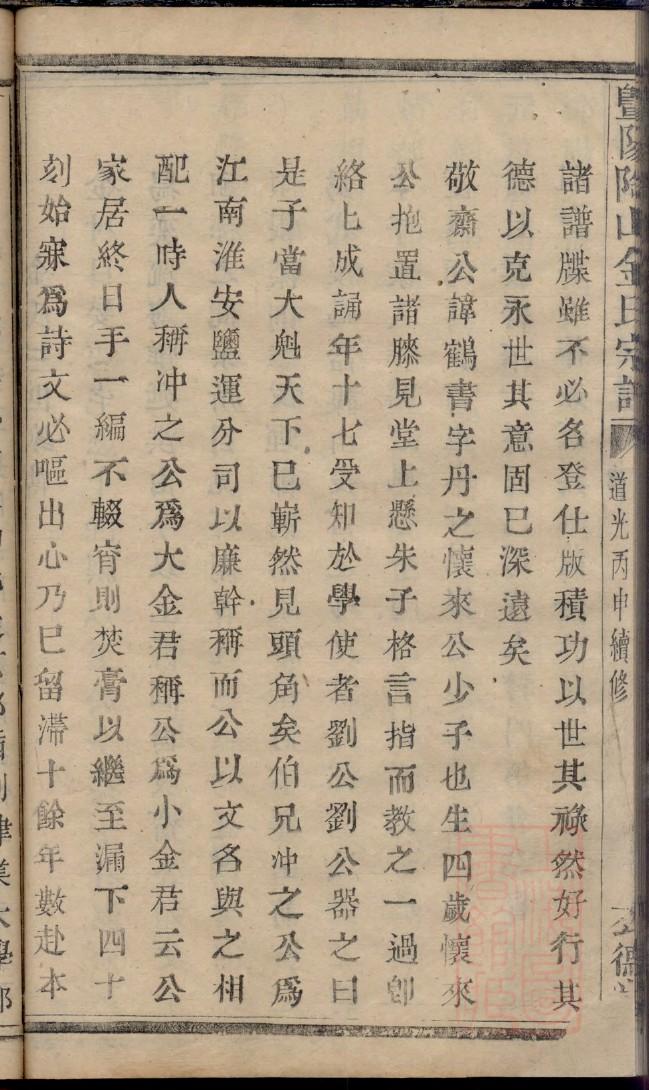 暨陽陶山金氏宗譜
道光丙申續修
諸譜牒雖不必名登仕版積功以世其祿然好行其
德以克永世其意固已深遠矣
敬齋公諱鶴書字丹之懷來公少子也生四歲懷來
公抱置諸膝見堂上懸朱子格言指而教之一過卽
絡上成誦年十七受知於學使者劉公劉公器之曰
是子當大魁天下已嶄然見頭角矣伯兄冲之公爲
江南淮安鹽運分司以廉幹稱而公以文名與之相
配一時人稱冲之公爲大金君稱公爲小金君云公
家居終日手一編不輟宵則焚膏以繼至漏下四十
刻始寐爲詩文必嘔出心乃已留滯十餘年數赴本